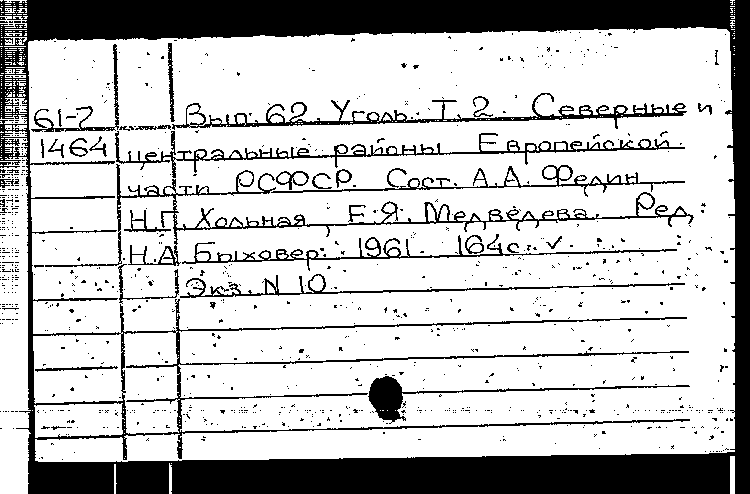 61-7 Вып. 62. Уголь. Т. 2. Северные и
1464 центральные районы Европейской
части РСФСР. Сост. А.А. Федин,
Н.Г. Хольная, Е.Я. Медведева. Ред.
Н.А. Быховер. 1961. 164с. ✓
Экз. N 10.